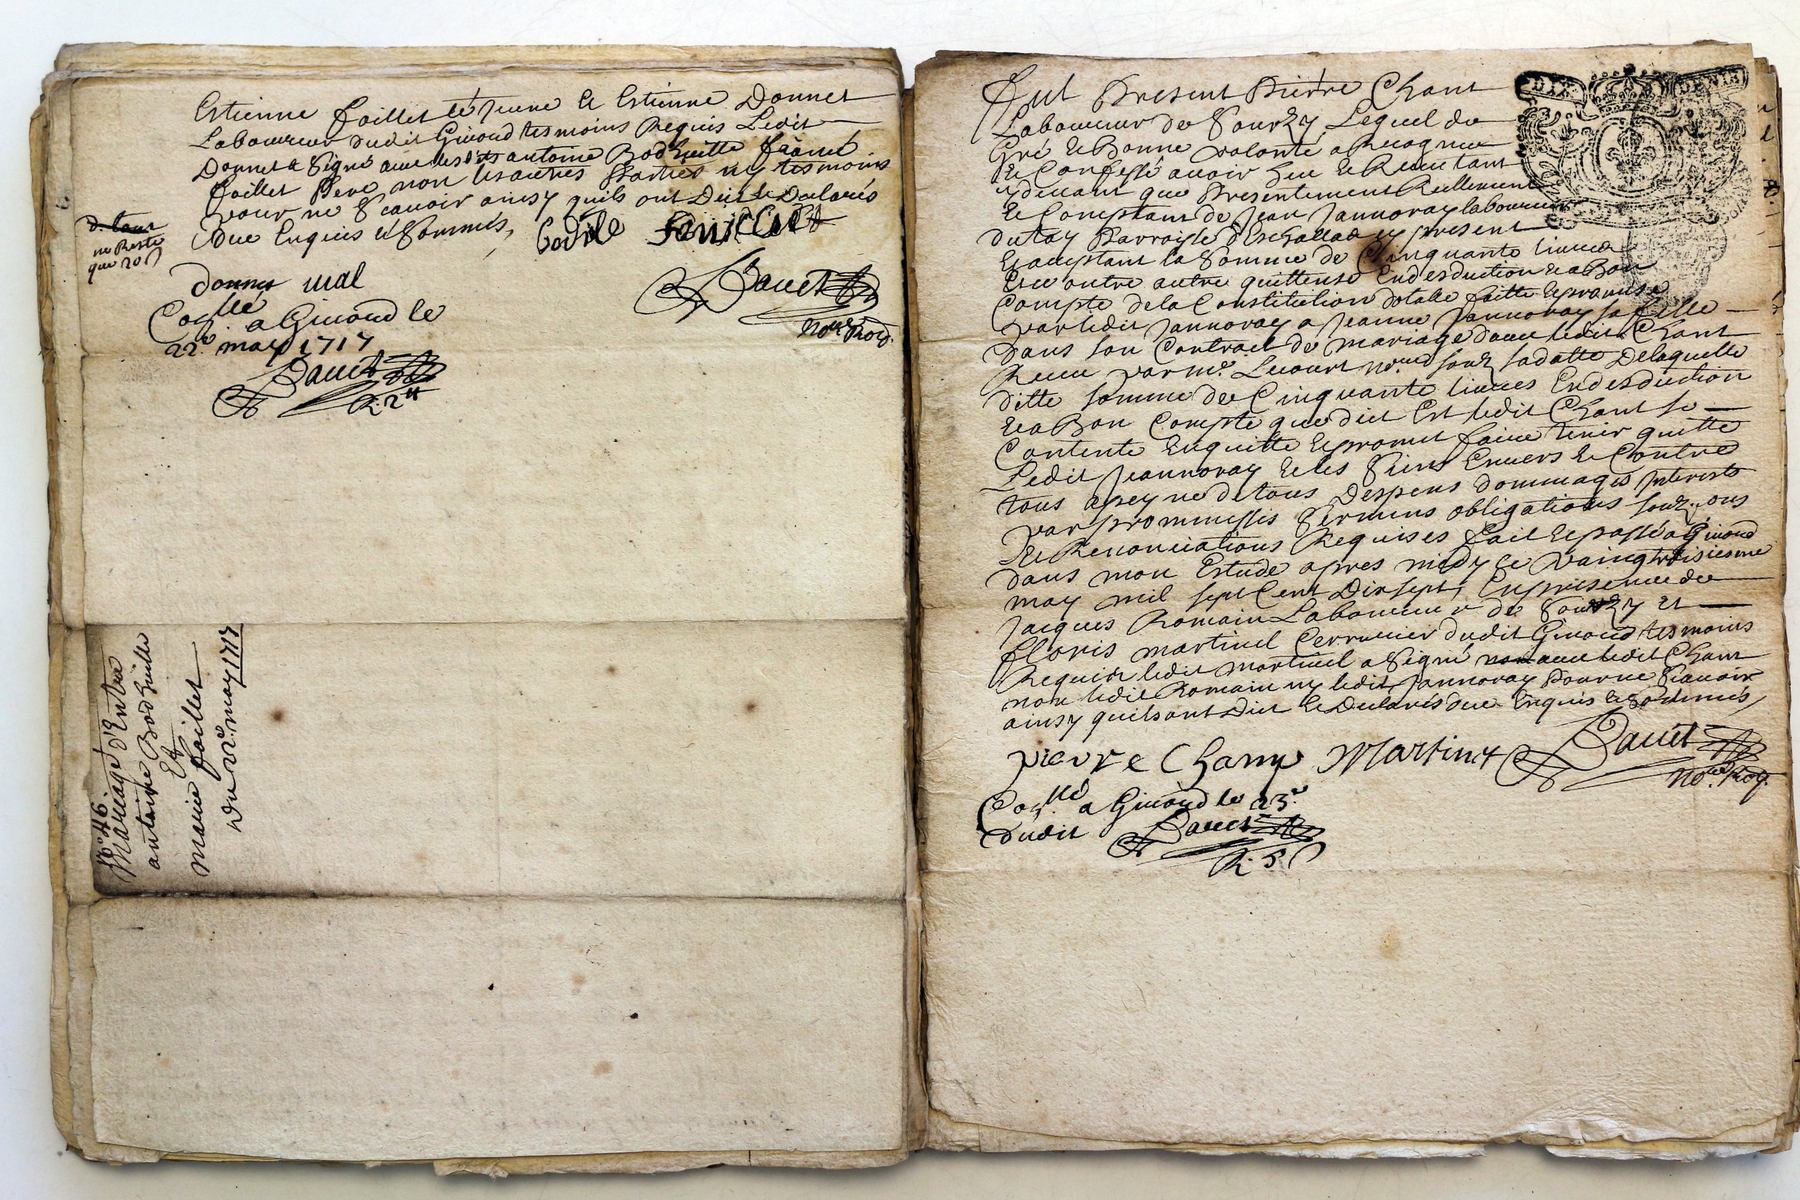 Estienne foillet le Jeune Et Estienne Donnet
Laboureur dudit Givord tesmoins Requis Ledit
Donnet a Signé avec lesdits antoine
foillet Pere non les autres Parties ny tesmoins
pour ne Scavoir ainsy quils ont Dit et Declarés
Due Enquis et Sommés,
ne Reste
que 20 s
donnet
Bauet
no.re Roy.
Coll.né a Givord le
22.e may 1717
Bauet
R. 2 tt
n.o 46.
Mariage d'Entre
antoine
Et
marie foillet
Du 22.e may 1717
DIX DENIE
Fut Present Pierre Chant
Laboureur de Sourzy Lequel de
Gré et Bonne volonte a Recognu
Et Confessé avoir heu et Receu tant
cydevant que Presentement Reellement
Et Comptant de Jean Jannoray laboureur
du Parroisse d'Eschallas cy present
Et acceptant la Somme de Cinquante livres
Et ce outre autre quittense En desduction et a Bon
Compte de la Constitution dotale faitte et promise
par ledit Jannoray a Jeanne Jannoray sa fille
Dans son Contract de mariage avec ledit Chant
Receu par m.e no.re souz sa datte De laquelle
ditte somme de Cinquante livres En desduction
et a Bon Compte que dict Est ledit Chant se
Contente En quitte et promet faire tenir quitte
Ledit Jeannoray et les Siens Envers et Contre
tous a peyne de tous Despens dommages Interests
par prommesses Sermens obligations
Et Renonciations Requises fait et passé a Givord
Dans mon Estude apres midy le vaingtroisieme
may mil sept Cent Dixsept, En presence de
Jacques Romain Laboureur de Sourzy Et
floris martinel Cerrurier dudit Givord tesmoins
Requis ledit martinel a Signé avec ledit Chant
non ledit Romain ny ledit Jannoray Pour ne Scavoir
ainsy quils ont Dict et Declarés due Enquis et Sommés,
pierre Chant Martinel Bauet
no.re Roy.
Coll.né a Givord le 23.e
dudit Bauet
R. 5 s